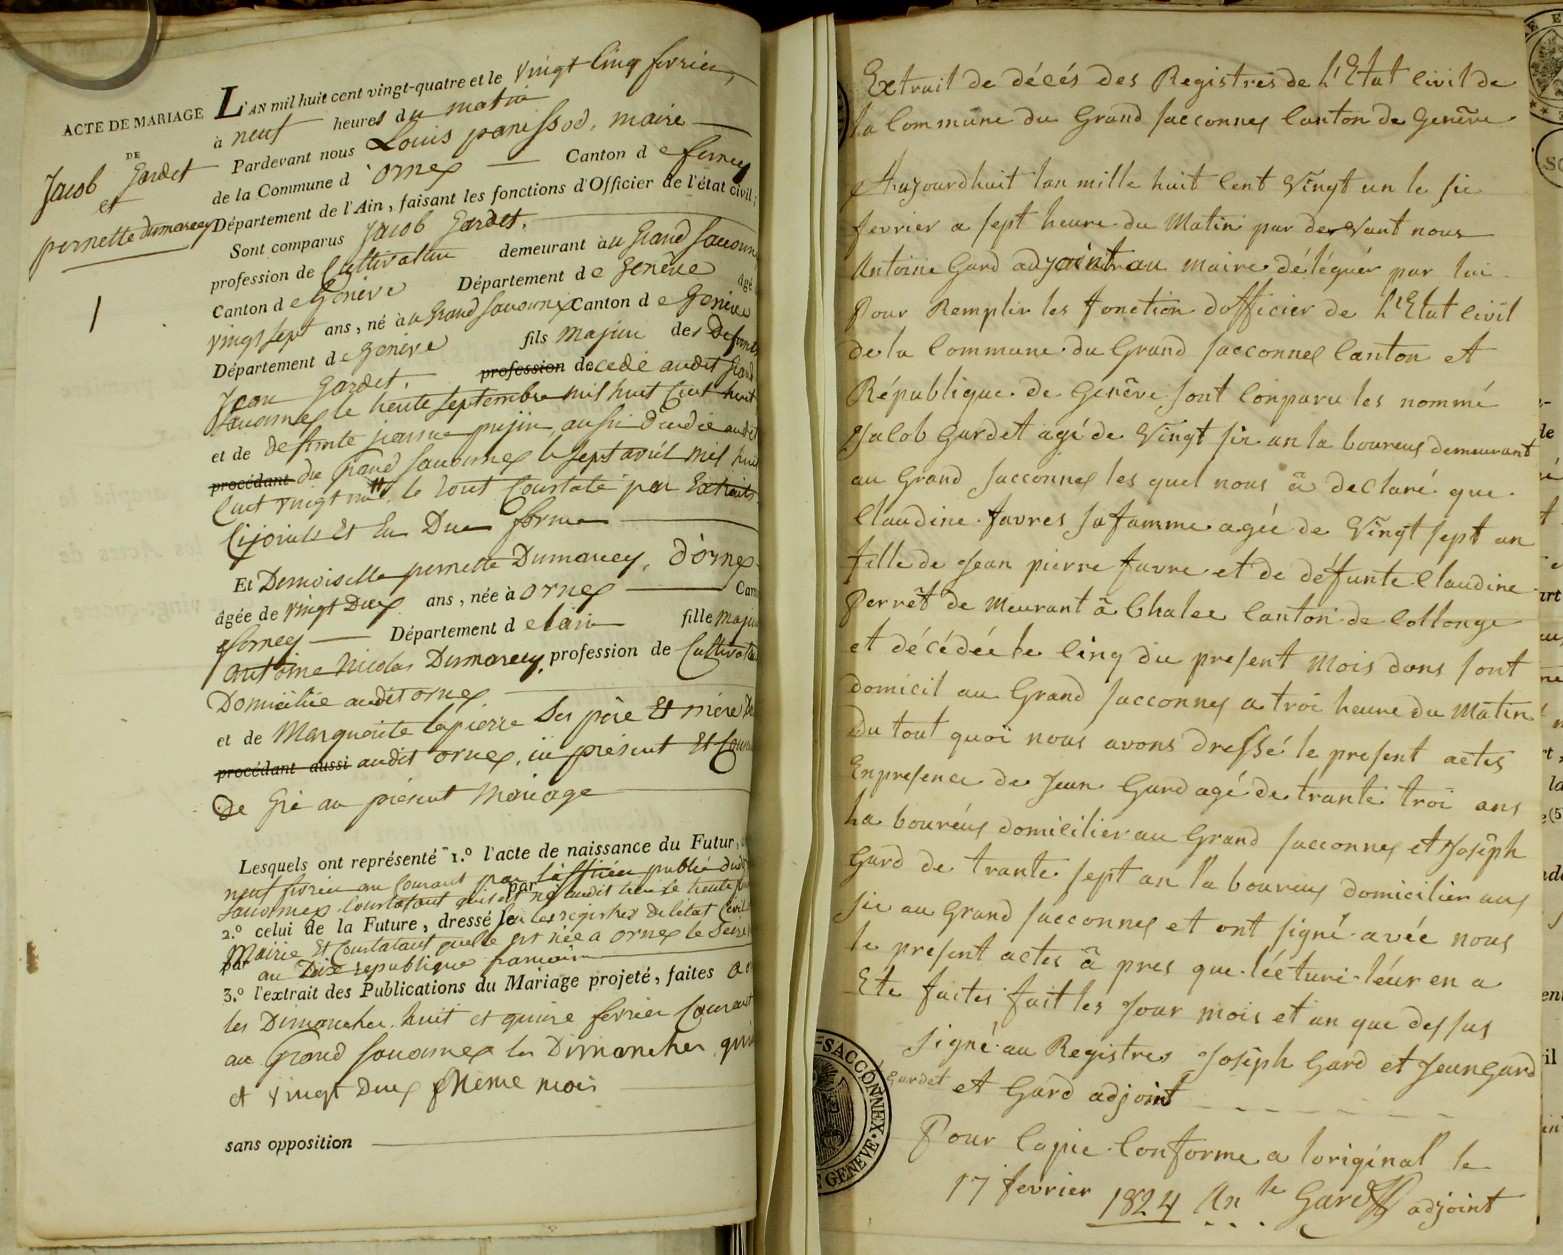 ACTE DE MARIAGE
DE
Jacob Gardet
et
pernette dumarcey
1
L'AN mil huit cent vingt-quatre et le vingt Cinq fevrier,
à neuf heures du matin
Pardevant nous Louis panissod, maire
de la Commune d'ornex Canton de ferney
Département de l'Ain, faisant les fonctions d'Officier de l'état civil;
Sont comparus Jacob Gardet,
profession de Cultivateur demeurant au Grand Saconnex
Canton de Genève Département de Genève âgé
vingt sept ans, né au Grand Saconnex Canton de Genève
Département de Genève fils majeur des Defunts
Jean Gardet, profession decedé audit Grand
Saconnex le trente septembre mil huit Cent huit
et de defunte jeanne pujin aussi décedée audit
procédant du Grand Saconnex le sept avril mil huit
Cent vingt un, le tout Constaté par Extraits
Cijoints Et En Due forme
Et Demoiselle pernette Dumarcey, D'ornex
âgée de vingt Deux ans, née à ornex Can
ferney Département de l'ain fille majeure
antoine Nicolas Dumarcey, profession de Cultivateur
Domiciliée audit ornex
et de Marguerite lapierre Ses père Et mère
procédant aussi audit ornex, ici présent Et
De Gré au présent Mariage
Lesquels ont représenté 1.º l'acte de naissance du Futur,
neuf fevrier au Courant par l'officier public dudit
Saconnex Constatant qu'il est né audit lieu le trente
2.º celui de la Future, dressé Sur les registres De l'état Civil
par Mairie Et Constatant qu'elle est née a ornex le Seize
au Dix republique francaise
3.º l'extrait des Publications du Mariage projeté, faites a
les Dimanches huit et quinze fevrier Courant
au Grand Saconnex les Dimanches quinze
et vingt Deux Même mois
sans opposition
Extrait de décés des Registres de L'Etat Civil de
la Commune du Grand Sacconnex Canton de Genève
Aujourdhuit lan mille huit Cent Vingt un le sic
fevrier a sept heure du Matin par de Vant nous
Antoine Gard adjoint au maire déléguér par lui
Pour Remplir les fonction dofficier de L'Etat Civil
de la Commune du Grand Sacconnex Canton et
République de Genêve sont Conparu les nommé
Jacob Gardet agé de Vingt six an la boureus demeurant
au Grand Sacconnex les quel nous â declaré que
Claudine favres sa famme agée de Vingt sept an
fille de Jean pierre favre et de défunte Claudine
Perrêt de meurant â Chalex Canton de Collonge
et décédée le Cinq du present mois dans sont
domicil au Grand Sacconnex a troi heure du Matin
Du tout quoi nous avons dressé le present actes
Enpresence de Jean Gard agé de trante troi ans
La boureus domicilier au Grand Sacconnex et Joseph
Gard de trante sept an la boureus domicilier aus
sic au Grand Sacconnex et ont signé avée nous
le present actes â pres que lécture léur en a
Ete faites fait les Jour mois et an que dessus
signé au Registres Joseph Gard et Jean Gard
Gardet et Gard adjoint
Pour Copie Conforme a loriginal le
17 fevrier 1824 An Gard adjoint
SACCONNEX
GENEVE